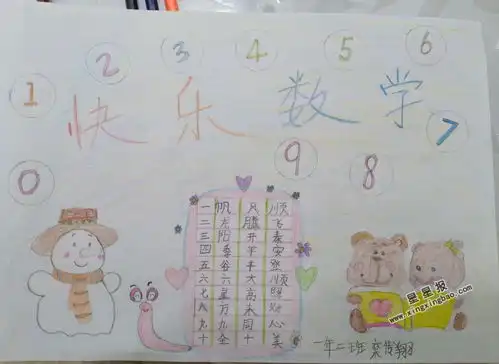 2 3 4 5 6
1 快乐数学 7
0 9 8
一帆风顺
二龙腾飞
三阳开泰
四季平安
五谷丰登
六六大顺
七星高照
九九同心
十全十美
一年二班
星星报
www.xingxingbao.com